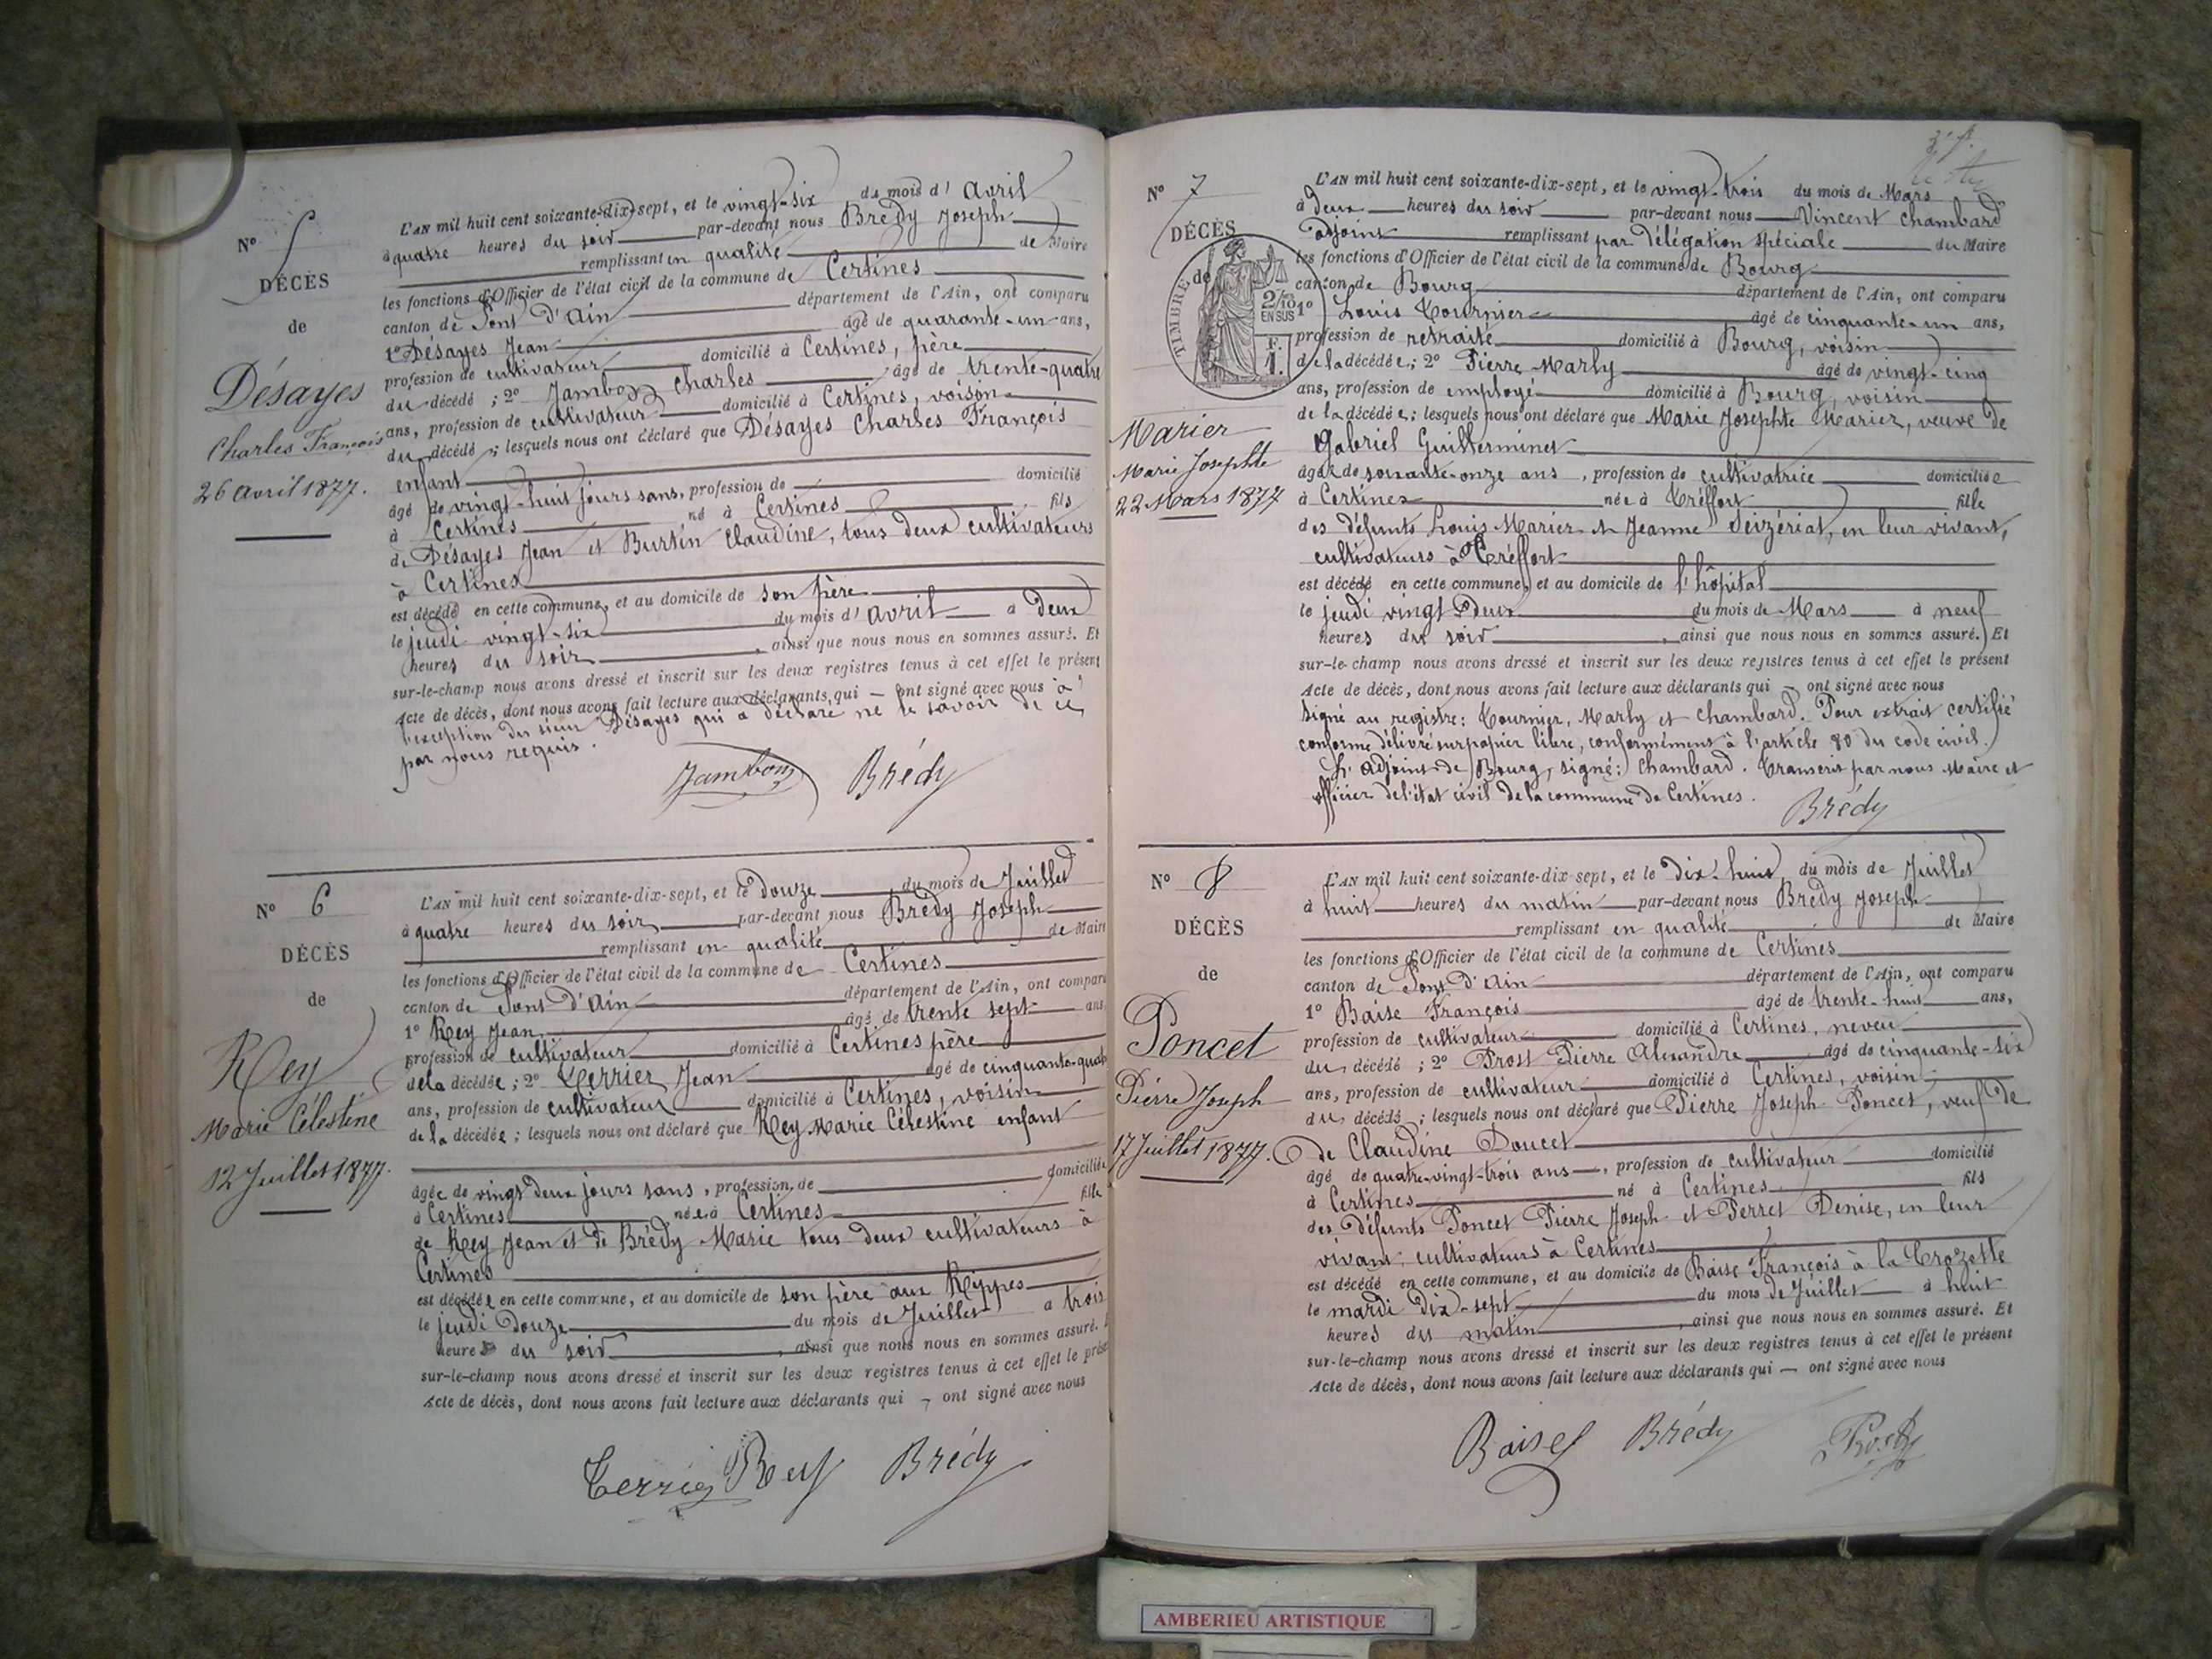 N° 5
DÉCÈS
de
Désayes
Charles François
26 avril 1877.
L'AN mil huit cent soixante-dix-sept, et le vingt-six du mois d'avril
à quatre heures du soir par-devant nous Brédy Joseph
remplissant en qualité de Maire
les fonctions d'Officier de l'état civil de la commune de Certines
canton de Pont d'Ain département de l'Ain, ont comparu
1° Désayes Jean âgé de quarante-un ans,
profession de cultivateur domicilié à Certines, père
du décédé ; 2° Jambon Charles âgé de trente-quatre
ans, profession de cultivateur domicilié à Certines, voisin
du décédé ; lesquels nous ont déclaré que Désayes Charles François
enfant
âgé de vingt-huit jours sans, profession de domicilié
à Certines né à Certines fils
de Désayes Jean et Burtin Claudine, tous deux cultivateurs
à Certines
est décédé en cette commune, et au domicile de son père
le jeudi vingt-six du mois d'avril à deux
heures du soir, ainsi que nous nous en sommes assuré. Et
sur-le-champ nous avons dressé et inscrit sur les deux registres tenus à cet effet le présent
Acte de décès, dont nous avons fait lecture aux déclarants qui — ont signé avec nous à
l'exception du sieur Désayes qui a déclaré ne le savoir de ce
par nous requis.
Jambon Brédy
N° 6
DÉCÈS
de
Rey
Marie Célestine
12 Juillet 1877.
L'AN mil huit cent soixante-dix-sept, et le douze du mois de Juillet
à quatre heures du soir par-devant nous Brédy Joseph
remplissant en qualité de Maire
les fonctions d'Officier de l'état civil de la commune de Certines
canton de Pont d'Ain département de l'Ain, ont comparu
1° Rey Jean âgé de trente sept ans
profession de cultivateur domicilié à Certines père
de la décédée ; 2° Terrier Jean âgé de cinquante-quat
ans, profession de cultivateur domicilié à Certines, voisin
de la décédée ; lesquels nous ont déclaré que Rey Marie Célestine enfant
âgée de vingt deux jours sans, profession de domiciliée
à Certines née à Certines fille
de Rey Jean et de Brédy Marie tous deux cultivateurs à
Certines
est décédée en cette commune, et au domicile de son père aux Rippes
le jeudi douze du mois de Juillet à trois
heures du soir, ainsi que nous nous en sommes assuré.
sur-le-champ nous avons dressé et inscrit sur les deux registres tenus à cet effet le prése
Acte de décès, dont nous avons fait lecture aux déclarants qui — ont signé avec nous
Terrier Rey Brédy
N° 7
DÉCÈS
de
TIMBRE
2/10
EN SUS
F.
1.
Marier
Marie Josephte
22 Mars 1877
L'AN mil huit cent soixante-dix-sept, et le vingt-trois du mois de Mars
à deux heures du soir par-devant nous Vincent Chambard
adjoint remplissant par délégation spéciale du Maire
les fonctions d'Officier de l'état civil de la commune de Bourg
canton de Bourg département de l'Ain, ont comparu
1° Louis Tournier âgé de cinquante-un ans,
profession de retraité domicilié à Bourg, voisin
de la décédée ; 2° Pierre Marly âgé de vingt-cinq
ans, profession de employé domicilié à Bourg, voisin
de la décédée ; lesquels nous ont déclaré que Marie Josephte Marier, veuve de
Gabriel Guillerminet
âgée de soixante-onze ans, profession de cultivatrice domiciliée
à Certines née à Tréffort fille
des défunts Louis Marier et Jeanne Seizériat, en leur vivant,
cultivateurs à Tréffort
est décédé en cette commune, et au domicile de l'hôpital
le jeudi vingt deux du mois de Mars à neuf
heures du soir, ainsi que nous nous en sommes assuré. Et
sur-le-champ nous avons dressé et inscrit sur les deux registres tenus à cet effet le présent
Acte de décès, dont nous avons fait lecture aux déclarants qui — ont signé avec nous
Signé au registre : Tournier, Marly et Chambard. Pour extrait certifié
conforme délivré sur papier libre, conformément à l'article 80 du code civil.
L'adjoint de Bourg, signé : Chambard. Transcrit par nous Maire et
officier de l'état civil de la commune de Certines.
Brédy
N° 8
DÉCÈS
de
Poncet
Pierre Joseph
17 Juillet 1877.
L'AN mil huit cent soixante-dix-sept, et le dix-huit du mois de Juillet
à huit heures du matin par-devant nous Brédy Joseph
remplissant en qualité de Maire
les fonctions d'Officier de l'état civil de la commune de Certines
canton de Pont d'Ain département de l'Ain, ont comparu
1° Baise François âgé de trente-huit ans,
profession de cultivateur domicilié à Certines, neveu
du décédé ; 2° Prost Pierre Alexandre âgé de cinquante-six
ans, profession de cultivateur domicilié à Certines, voisin
du décédé ; lesquels nous ont déclaré que Pierre Joseph Poncet, veuf de
de Claudine Doucet
âgé de quatre-vingt-trois ans, profession de cultivateur domicilié
à Certines né à Certines fils
des défunts Poncet Pierre Joseph et Perret Denise, en leur
vivant, cultivateurs à Certines
est décédé en cette commune, et au domicile de Baise François à la Crozette
le mardi dix-sept du mois de Juillet à huit
heures du matin, ainsi que nous nous en sommes assuré. Et
sur-le-champ nous avons dressé et inscrit sur les deux registres tenus à cet effet le présent
Acte de décès, dont nous avons fait lecture aux déclarants qui — ont signé avec nous
Baise f Brédy Prost
AMBERIEU ARTISTIQUE